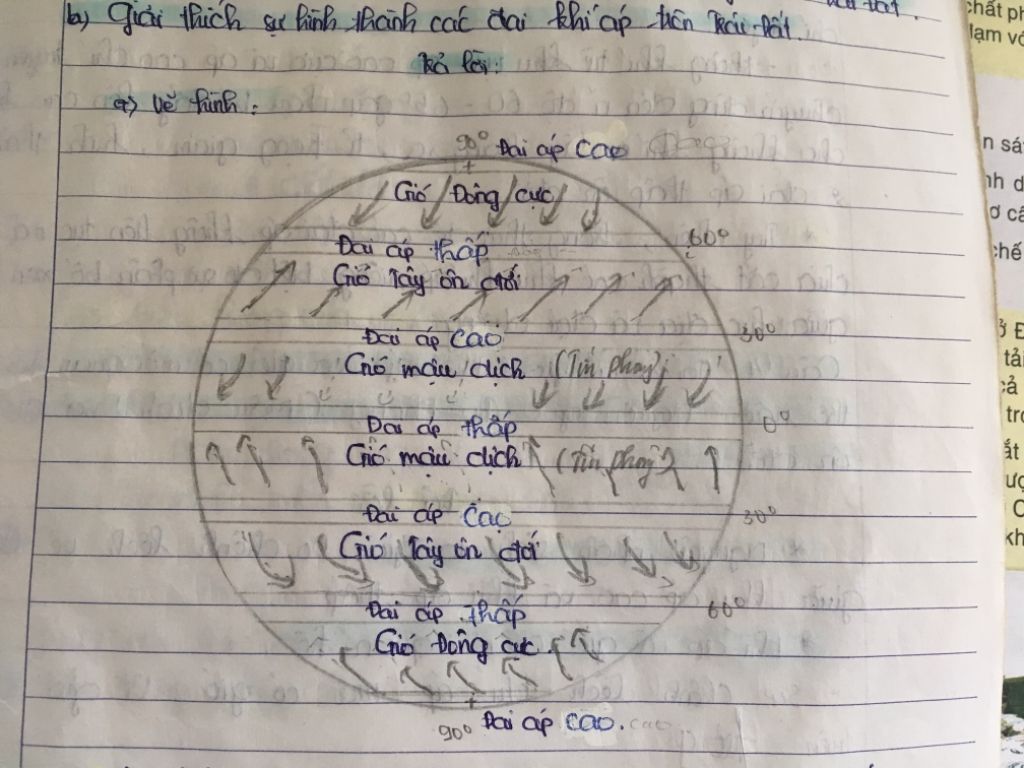 b) Giải thích sự hình thành các đai khí áp trên trái đất.
trả lời:
a) vẽ hình:
90° Đai áp cao
Gió Đông cực
60°
Đai áp thấp
Gió Tây ôn đới
Đai áp cao 30°
Gió mậu dịch (Tín phong)
Đai áp thấp 0°
Gió mậu dịch (Tín phong)
Đai áp cao 30°
Gió Tây ôn đới
Đai áp thấp 60°
Gió Đông cực
90° Đai áp cao. cao
chất ph
đạm vớ
n sá
nh d
ơ cấ
chế
ở Đ
tải
cả
tro
ất
ượ
C
kh